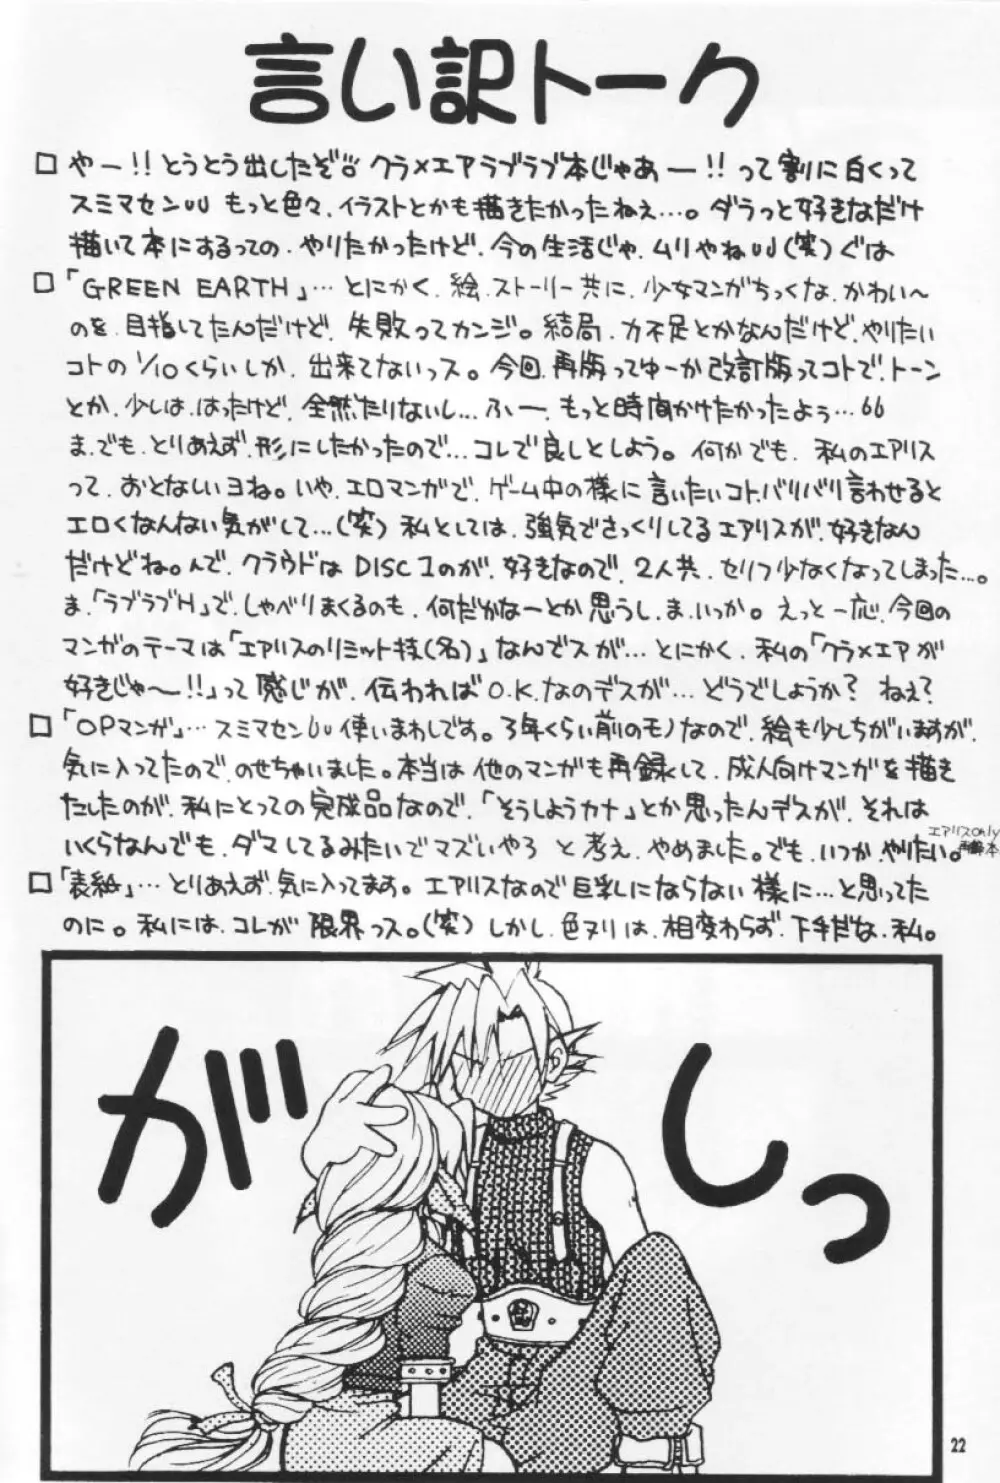 言い訳トーク
□ やー!!とうとう出したぞ クラ×エアラブラブ本じゃあー!!って割に白くって
スミマセンUU もっと色々、イラストとかも描きたかったねぇ…。ダラっと好きなだけ
描いて本にするっての、やりたかったけど、今の生活じゃ、ムリやねUU(笑)ぐは
□「GREEN EARTH」…とにかく、絵、ストーリー共に、少女マンガちっくな、かわい〜
のを、目指してたんだけど、失敗ってカンジ。結局、力不足とかなんだけど、やりたい
コトの1/10くらいしか、出来てないっス。今回、再版ってゆーか改訂版ってコトで、トーン
とか、少しは、はったけど、全然たりないし…ふー、もっと時間かけたかったよぅ…66
ま、でも、とりあえず、形にしたかったので…コレで良しとしよう。何かでも、私のエアリス
って、おとなしいヨね。いや、エロマンガで、ゲーム中の様に言いたいコト、バリバリ言わせると
エロくなんない気がして…(笑)私としては、強気でさっくりしてるエアリスが、好きなん
だけどね。んで、クラウドはDISC1のが、好きなので、2人共、セリフ少なくなってしまった…。
ま、「ラブラブH」で、しゃべりまくるのも、何だかなーとか思うし、ま、いっか。えっと一応、今回の
マンガのテーマは「エアリスのリミット技(名)」なんでスが…とにかく、私の「クラ×エアが
好きじゃ〜!!」って感じが、伝わればO.K.なのデスが…どうでしょうか?ねぇ?
□「OPマンガ」…スミマセンUU使いまわしです。3年くらい前のモノなので、絵も少しちがいますが、
気に入ってたので、のせちゃいました。本当は他のマンガも再録して、成人向けマンガを描き
たしたのが、私にとっての完成品なので、「そうしようカナ」とか思ったんデスが、それは
いくらなんでも、ダマしてるみたいでマズいやろ と考え、やめました。でも、いつか、やりたい。エアリスonly
再録本
□「表紙」…とりあえず、気に入ってます。エアリスなので巨乳にならない様に…と思ってた
のに。私には、コレが限界っス。(笑)しかし、色ヌリは、相変わらず、下手だな、私。
がしっ
22